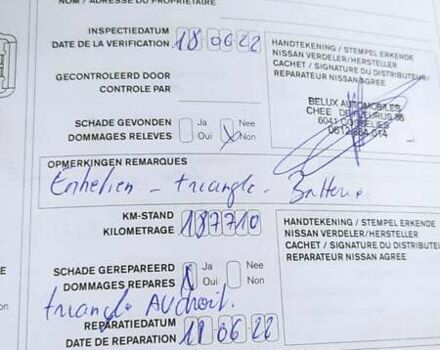 NOM / ADRESSE DU PROPRIETAIRE
INSPECTIEDATUM
DATE DE LA VERIFICATION 18 06 22
HANDTEKENING / STEMPEL ERKENDE
NISSAN VERDELER/HERSTELLER
CACHET / SIGNATURE DU DISTRIBUTEUR/
REPARATEUR NISSAN AGREE
GECONTROLEERD DOOR
CONTROLE PAR
BELUX AUTOMOBILES
CHEE DE FLEURUS
6041 GOSSELIES
SCHADE GEVONDEN Ja Nee
DOMMAGES RELEVES Oui Non
OPMERKINGEN REMARQUES
Entretien - triangle - Batterie
KM-STAND
KILOMETRAGE 187710
HANDTEKENING / STEMPEL ERKENDE
NISSAN VERDELER/HERSTELLER
CACHET / SIGNATURE DU DISTRIBUTEU
REPARATEUR NISSAN AGREE
SCHADE GEREPAREERD Ja Nee
DOMMAGES REPARES Oui Non
triangle AV droit.
REPARATIEDATUM
DATE DE REPARATION 06 22